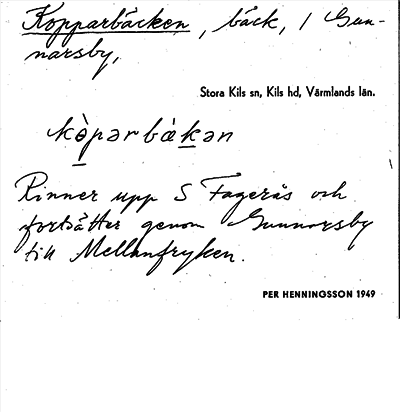 Kopparbäcken, bäck, i Gun-
narsby,
Stora Kils sn, Kils hd, Värmlands län.
kòpərbäkən
Rinner upp S Fagerås och
fortsätter genom Gunnarsby
till Mellanfryken.
PER HENNINGSSON 1949